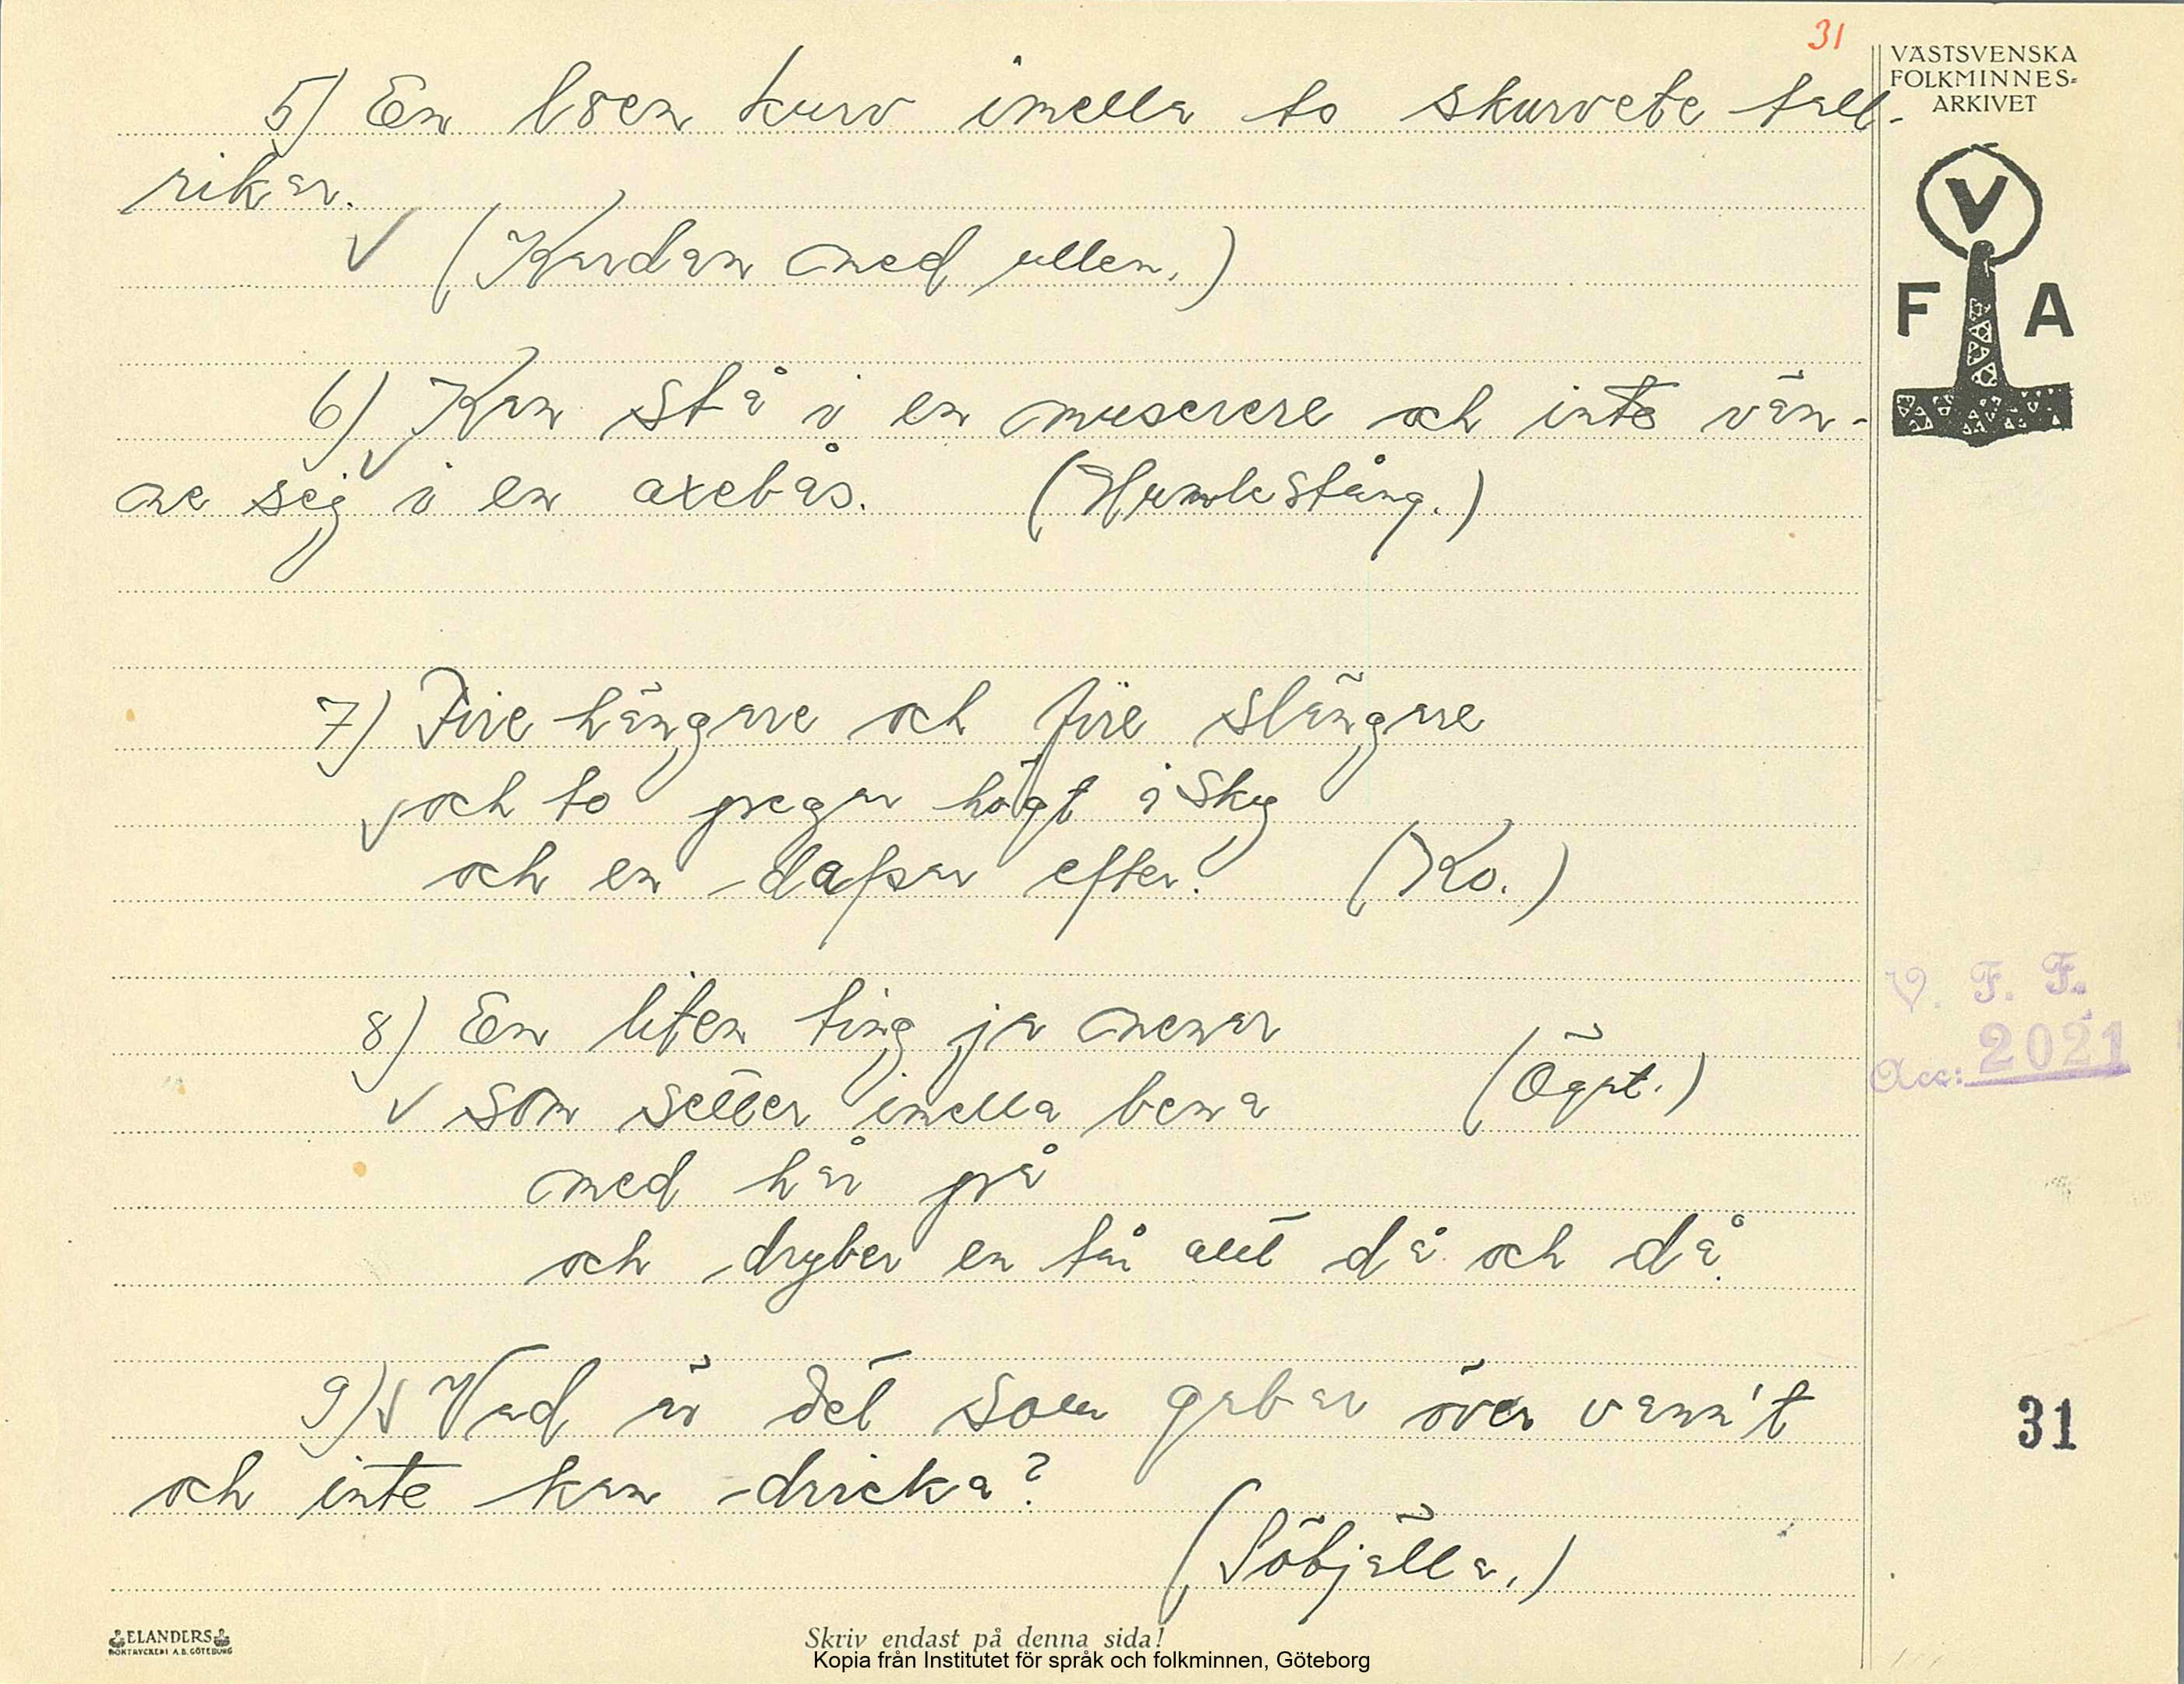 31
VÄSTSVENSKA
FOLKMINNES-
ARKIVET
V
F A
5) En loen kurv imella to skurvete tall-
rikar.
(Kardan med ullen.)
6) Kan stå i en muserere och inte vän-
ne sig i en axebås. (Humlestång.)
7) Fire hängare och fire slängare
och to pregar högt i sky
och en dafsar efter. (Ko.)
8) En liten ting ja menar
som setter imella bena (Ögat.)
med hår på
och dryber en tår ått då och då.
9) Vad är det som gabar över vann't
och inte kan dricka?
(Söbjälla.)
V. F. F.
Acc: 2021
31
ELANDERS
BOKTRYCKERI A.B. GÖTEBORG
Skriv endast på denna sida!
Kopia från Institutet för språk och folkminnen, Göteborg